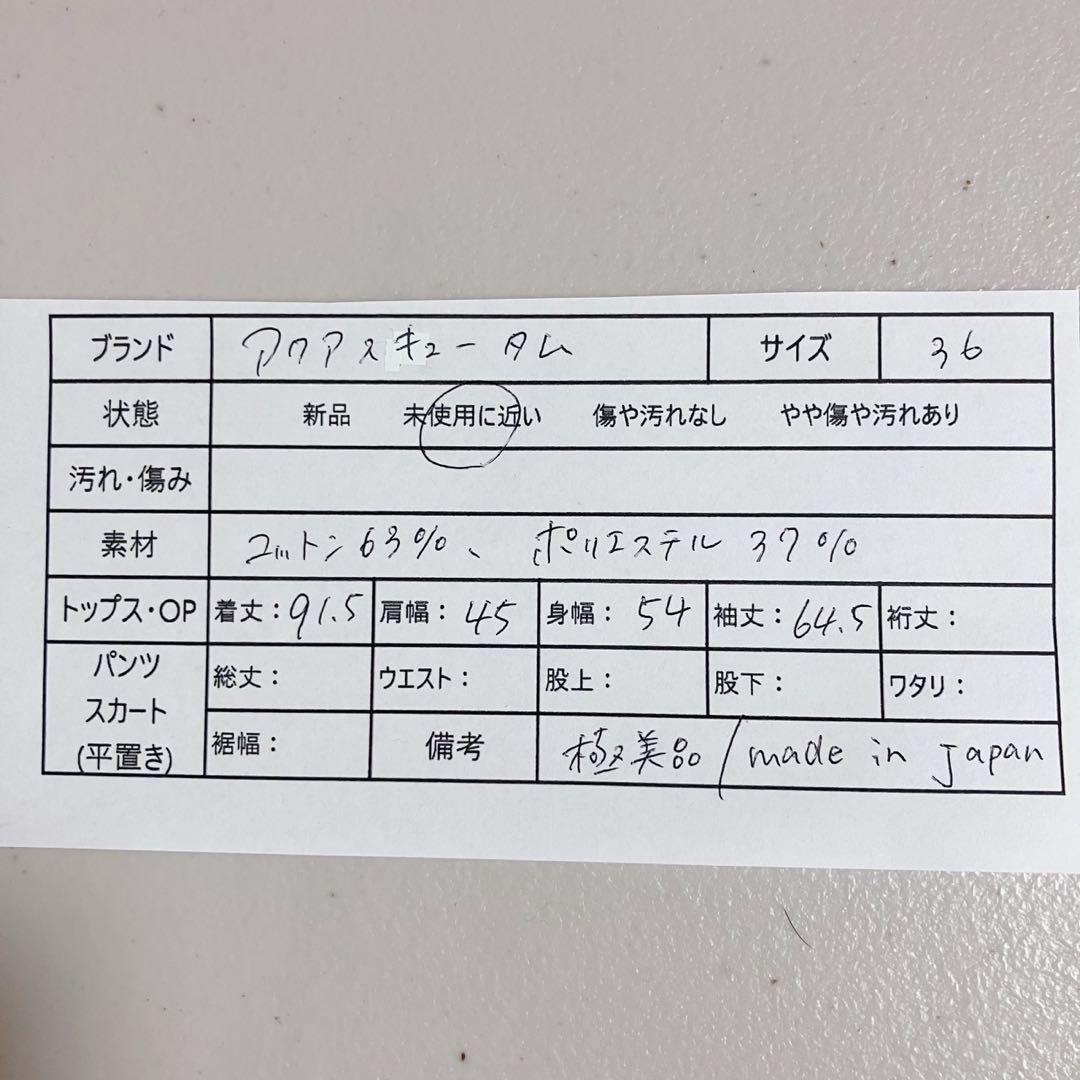 ブランド アクアスキュータム サイズ 36
状態 新品 未使用に近い 傷や汚れなし やや傷や汚れあり
汚れ・傷み
素材 コットン63%、ポリエステル37%
トップス・OP 着丈:91.5 肩幅:45 身幅:54 袖丈:64.5 裄丈:
パンツ
スカート
(平置き)
総丈: ウエスト: 股上: 股下: ワタリ:
裾幅: 備考 極美品/made in Japan